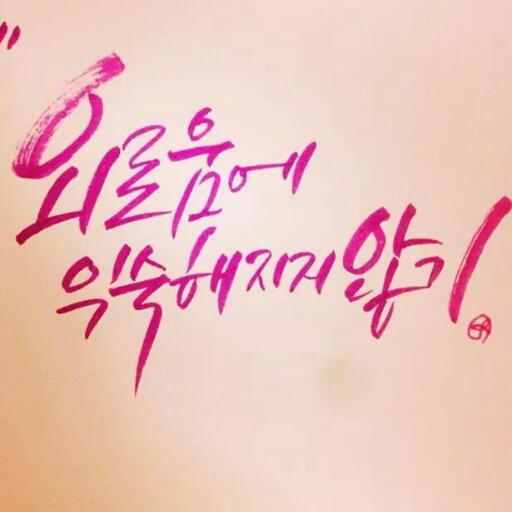 "외로움에
익숙해지지 않기!